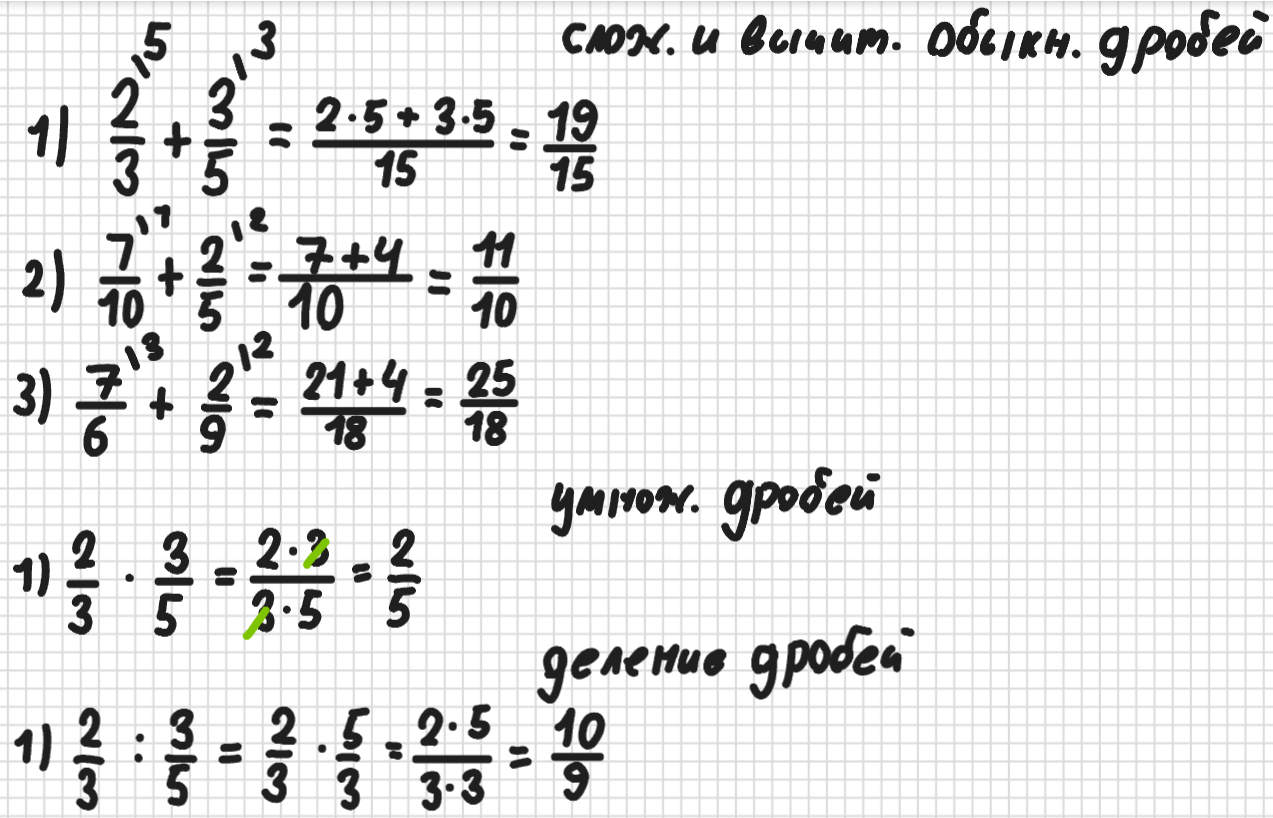 слож. и вычит. обыкн. дробей
1) 2/3 ^5 + 3/5 ^3 = (2·5 + 3·5)/15 = 19/15
2) 7/10 ^1 + 2/5 ^2 = (7+4)/10 = 11/10
3) 7/6 ^3 + 2/9 ^2 = (21+4)/18 = 25/18
умнож. дробей
1) 2/3 · 3/5 = (2·3)/(3·5) = 2/5
деление дробей
1) 2/3 : 3/5 = 2/3 · 5/3 = (2·5)/(3·3) = 10/9